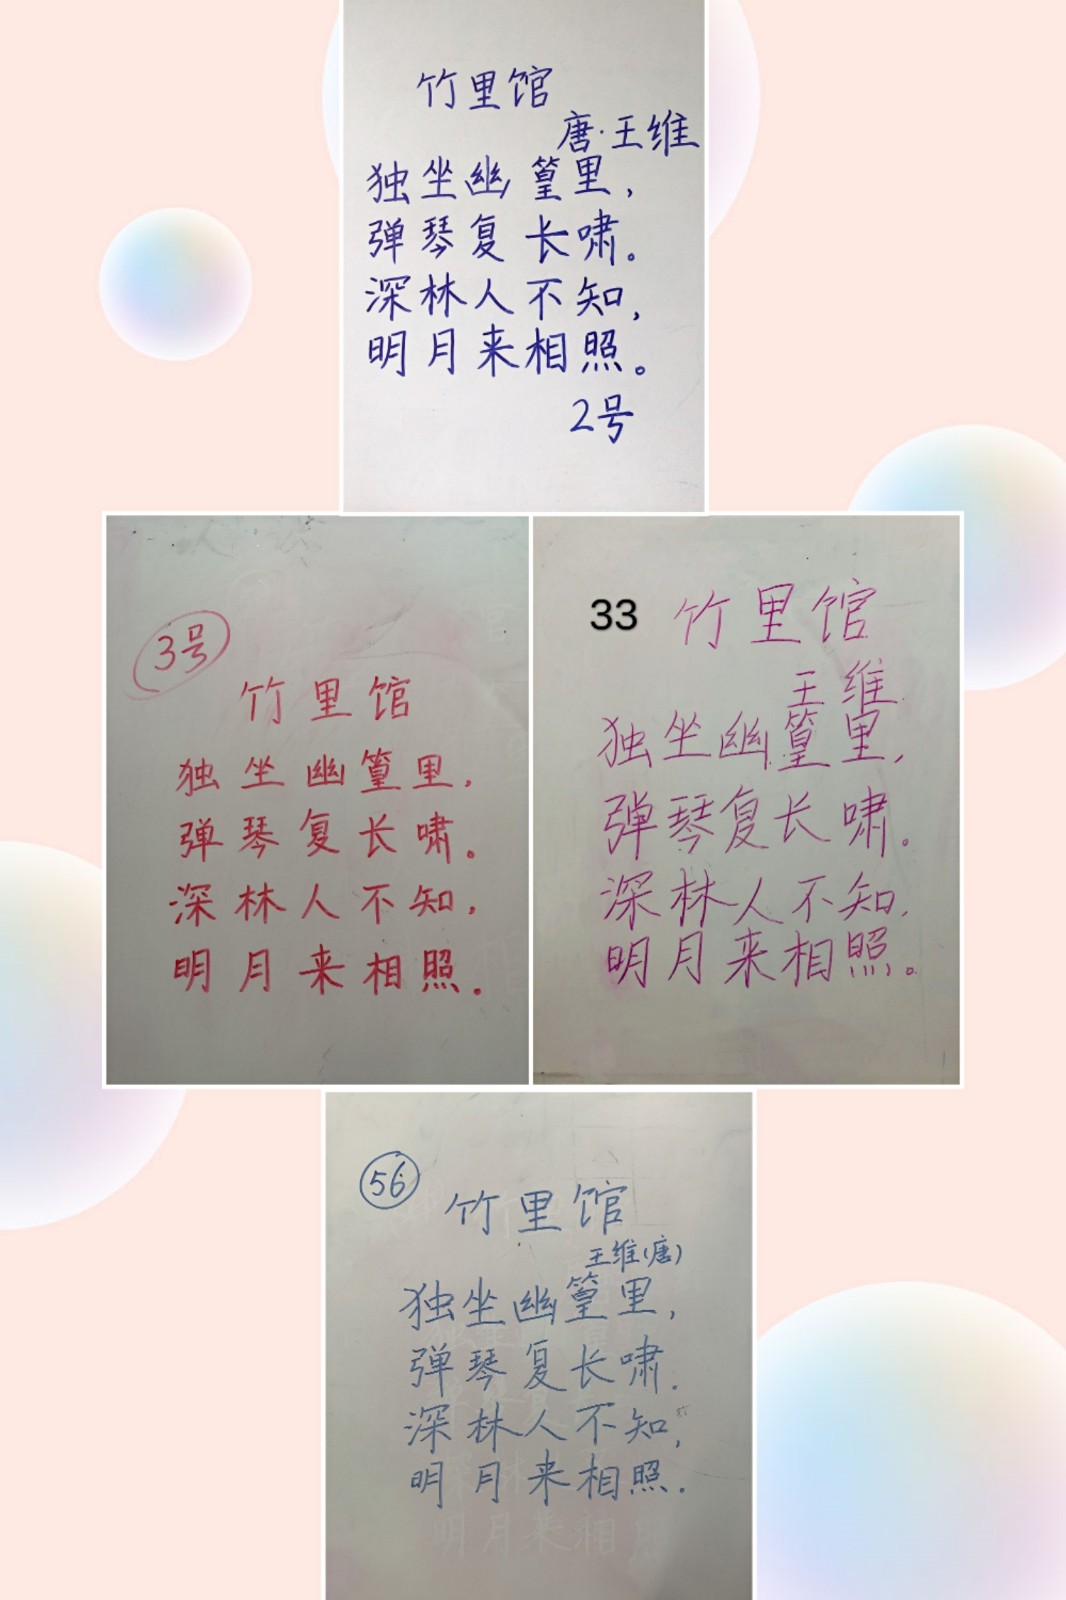 竹里馆
唐·王维
独坐幽篁里,
弹琴复长啸。
深林人不知,
明月来相照。
2号
3号
竹里馆
独坐幽篁里,
弹琴复长啸。
深林人不知,
明月来相照.
33
竹里馆
王维
独坐幽篁里,
弹琴复长啸。
深林人不知,
明月来相照。
56
竹里馆
王维(唐)
独坐幽篁里,
弹琴复长啸.
深林人不知,
明月来相照.